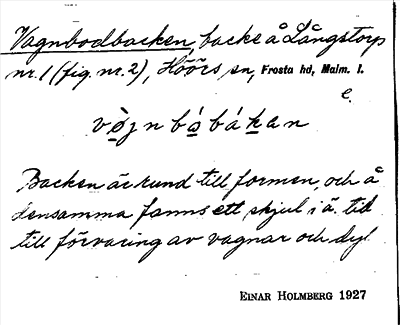 Vagnbodbacken, backe å Långstorp
nr. 1 (fig. nr. 2), Höörs sn, Frosta hd, Malm. l.
e.
Backen är rund till formen, och å
densamma fanns ett skjul i ä. tid
till förvaring av vagnar och dyl.
EINAR HOLMBERG 1927